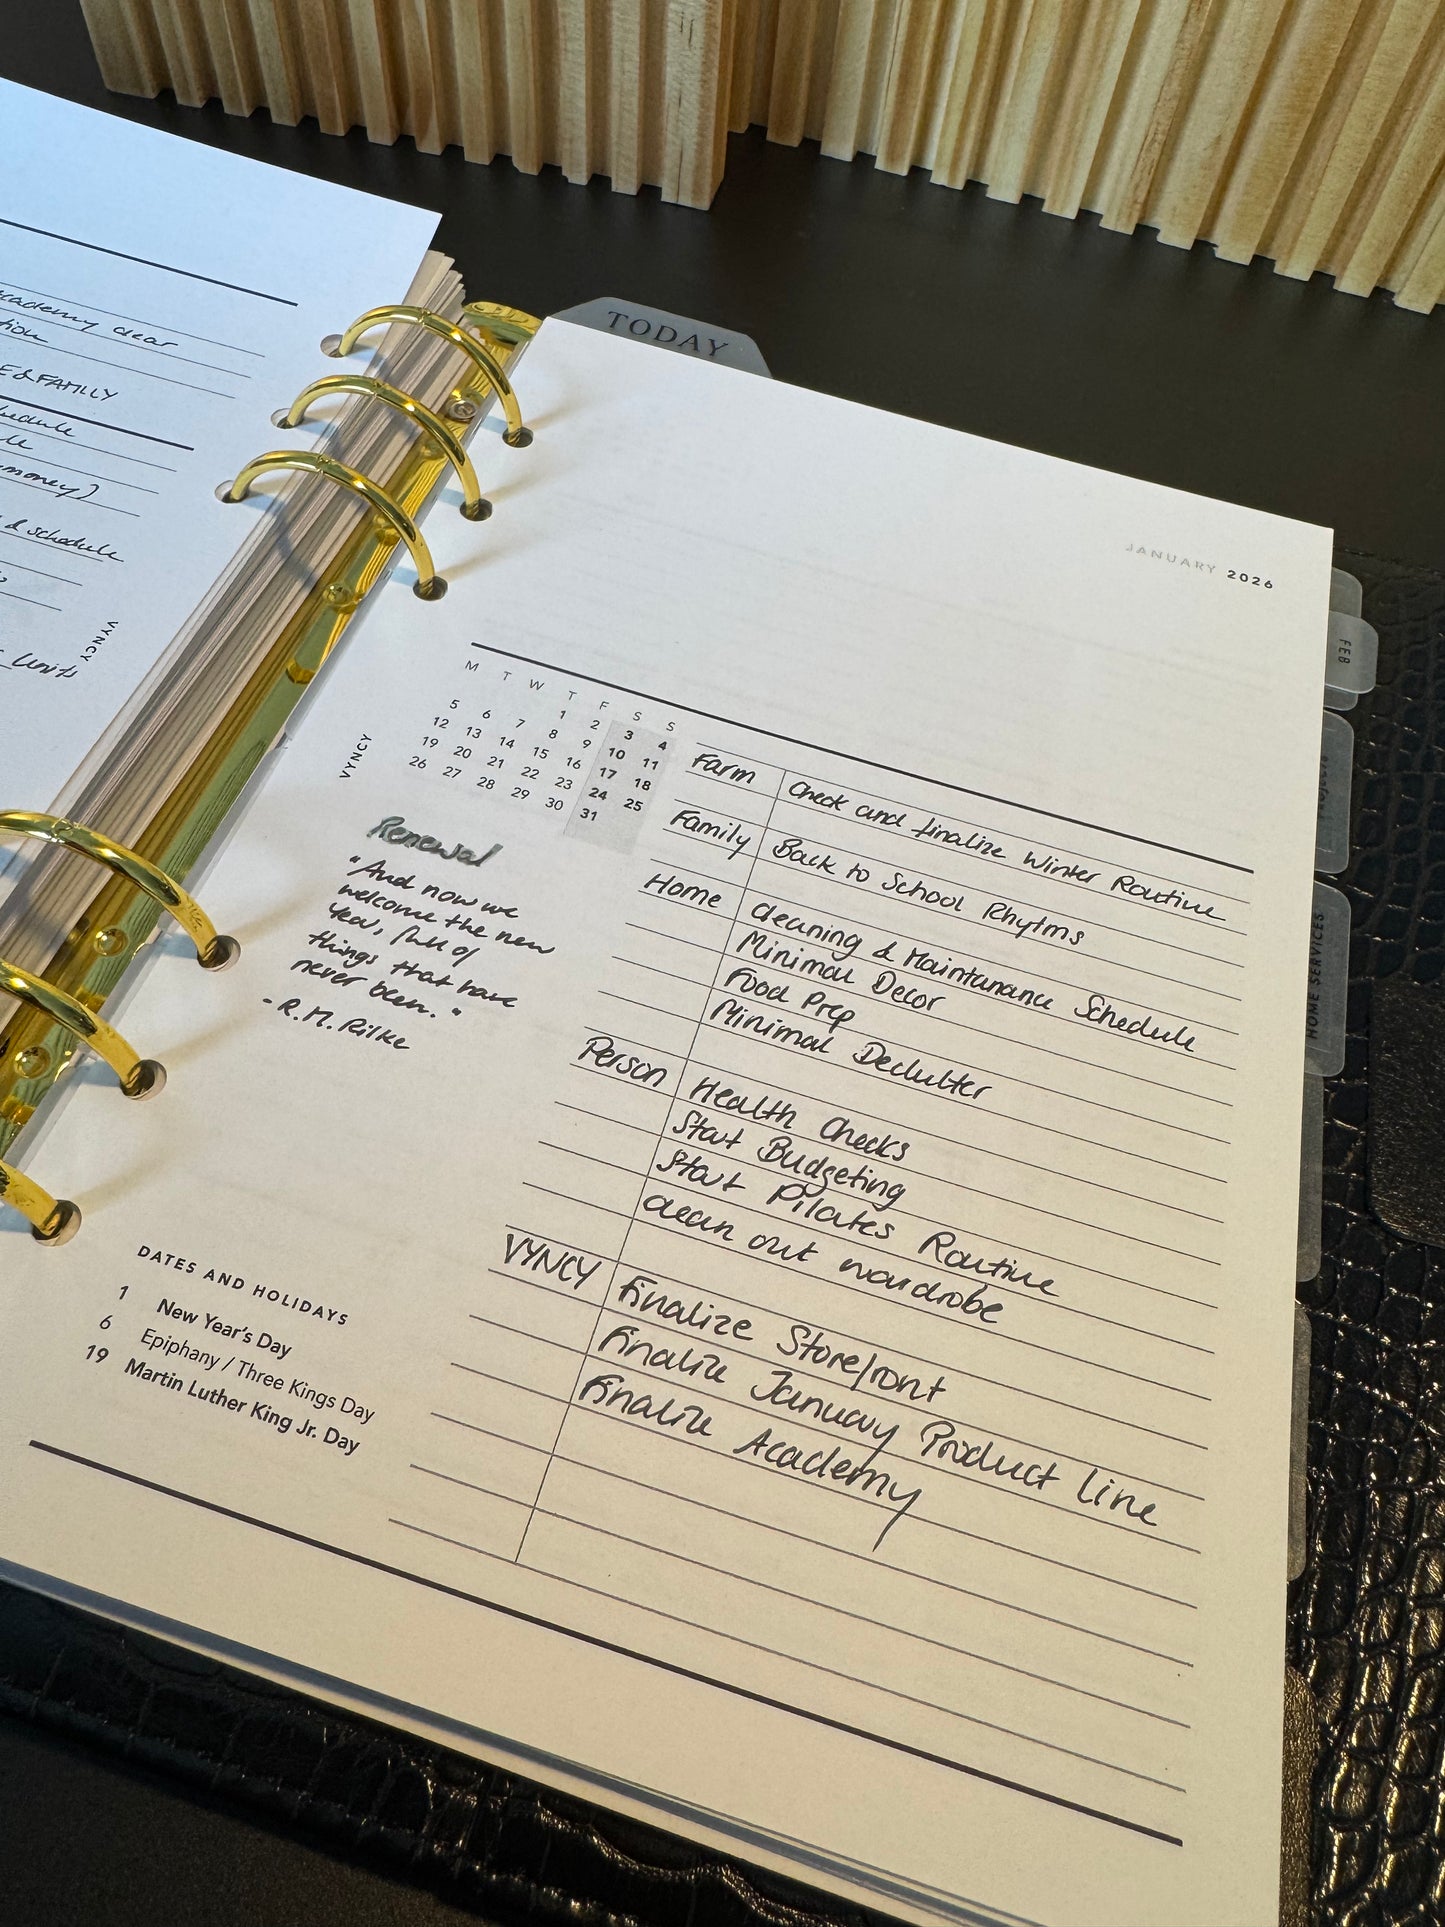 academy clear
E & FAMILY
(money)
& schedule
Units
VYNCY
TODAY
JANUARY 2026
FEB
PROJECTS
HOME SERVICES
M T W T F S S
1 2 3 4
5 6 7 8 9 10 11
12 13 14 15 16 17 18
19 20 21 22 23 24 25
26 27 28 29 30 31
VYNCY
Renewal
"And now we
welcome the new
year, full of
things that have
never been."
- R.M. Rilke
DATES AND HOLIDAYS
1 New Year's Day
6 Epiphany / Three Kings Day
19 Martin Luther King Jr. Day
Farm Check and finalize Winter Routine
Family Back to School Rhytms
Home Cleaning & Maintanance Schedule
Minimal Decor
Food Prep
Minimal Declutter
Person Health Checks
Start Budgeting
Start Pilates Routine
Clean out wardrobe
VYNCY Finalize Storefront
Finalize January Product Line
Finalize Academy